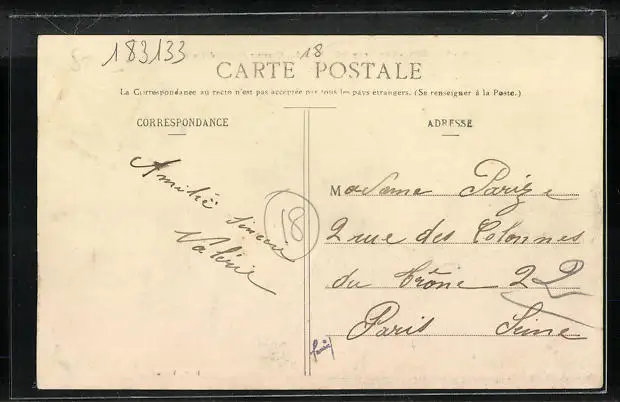 183133
18
CARTE POSTALE
La Correspondance au recto n'est pas acceptée par tous les pays étrangers. (Se renseigner à la Poste.)
CORRESPONDANCE
Amitié sincère
Valérie
18
ADRESSE
Madame Parize
2 rue des Colonnes
du Trône 22
Paris Seine